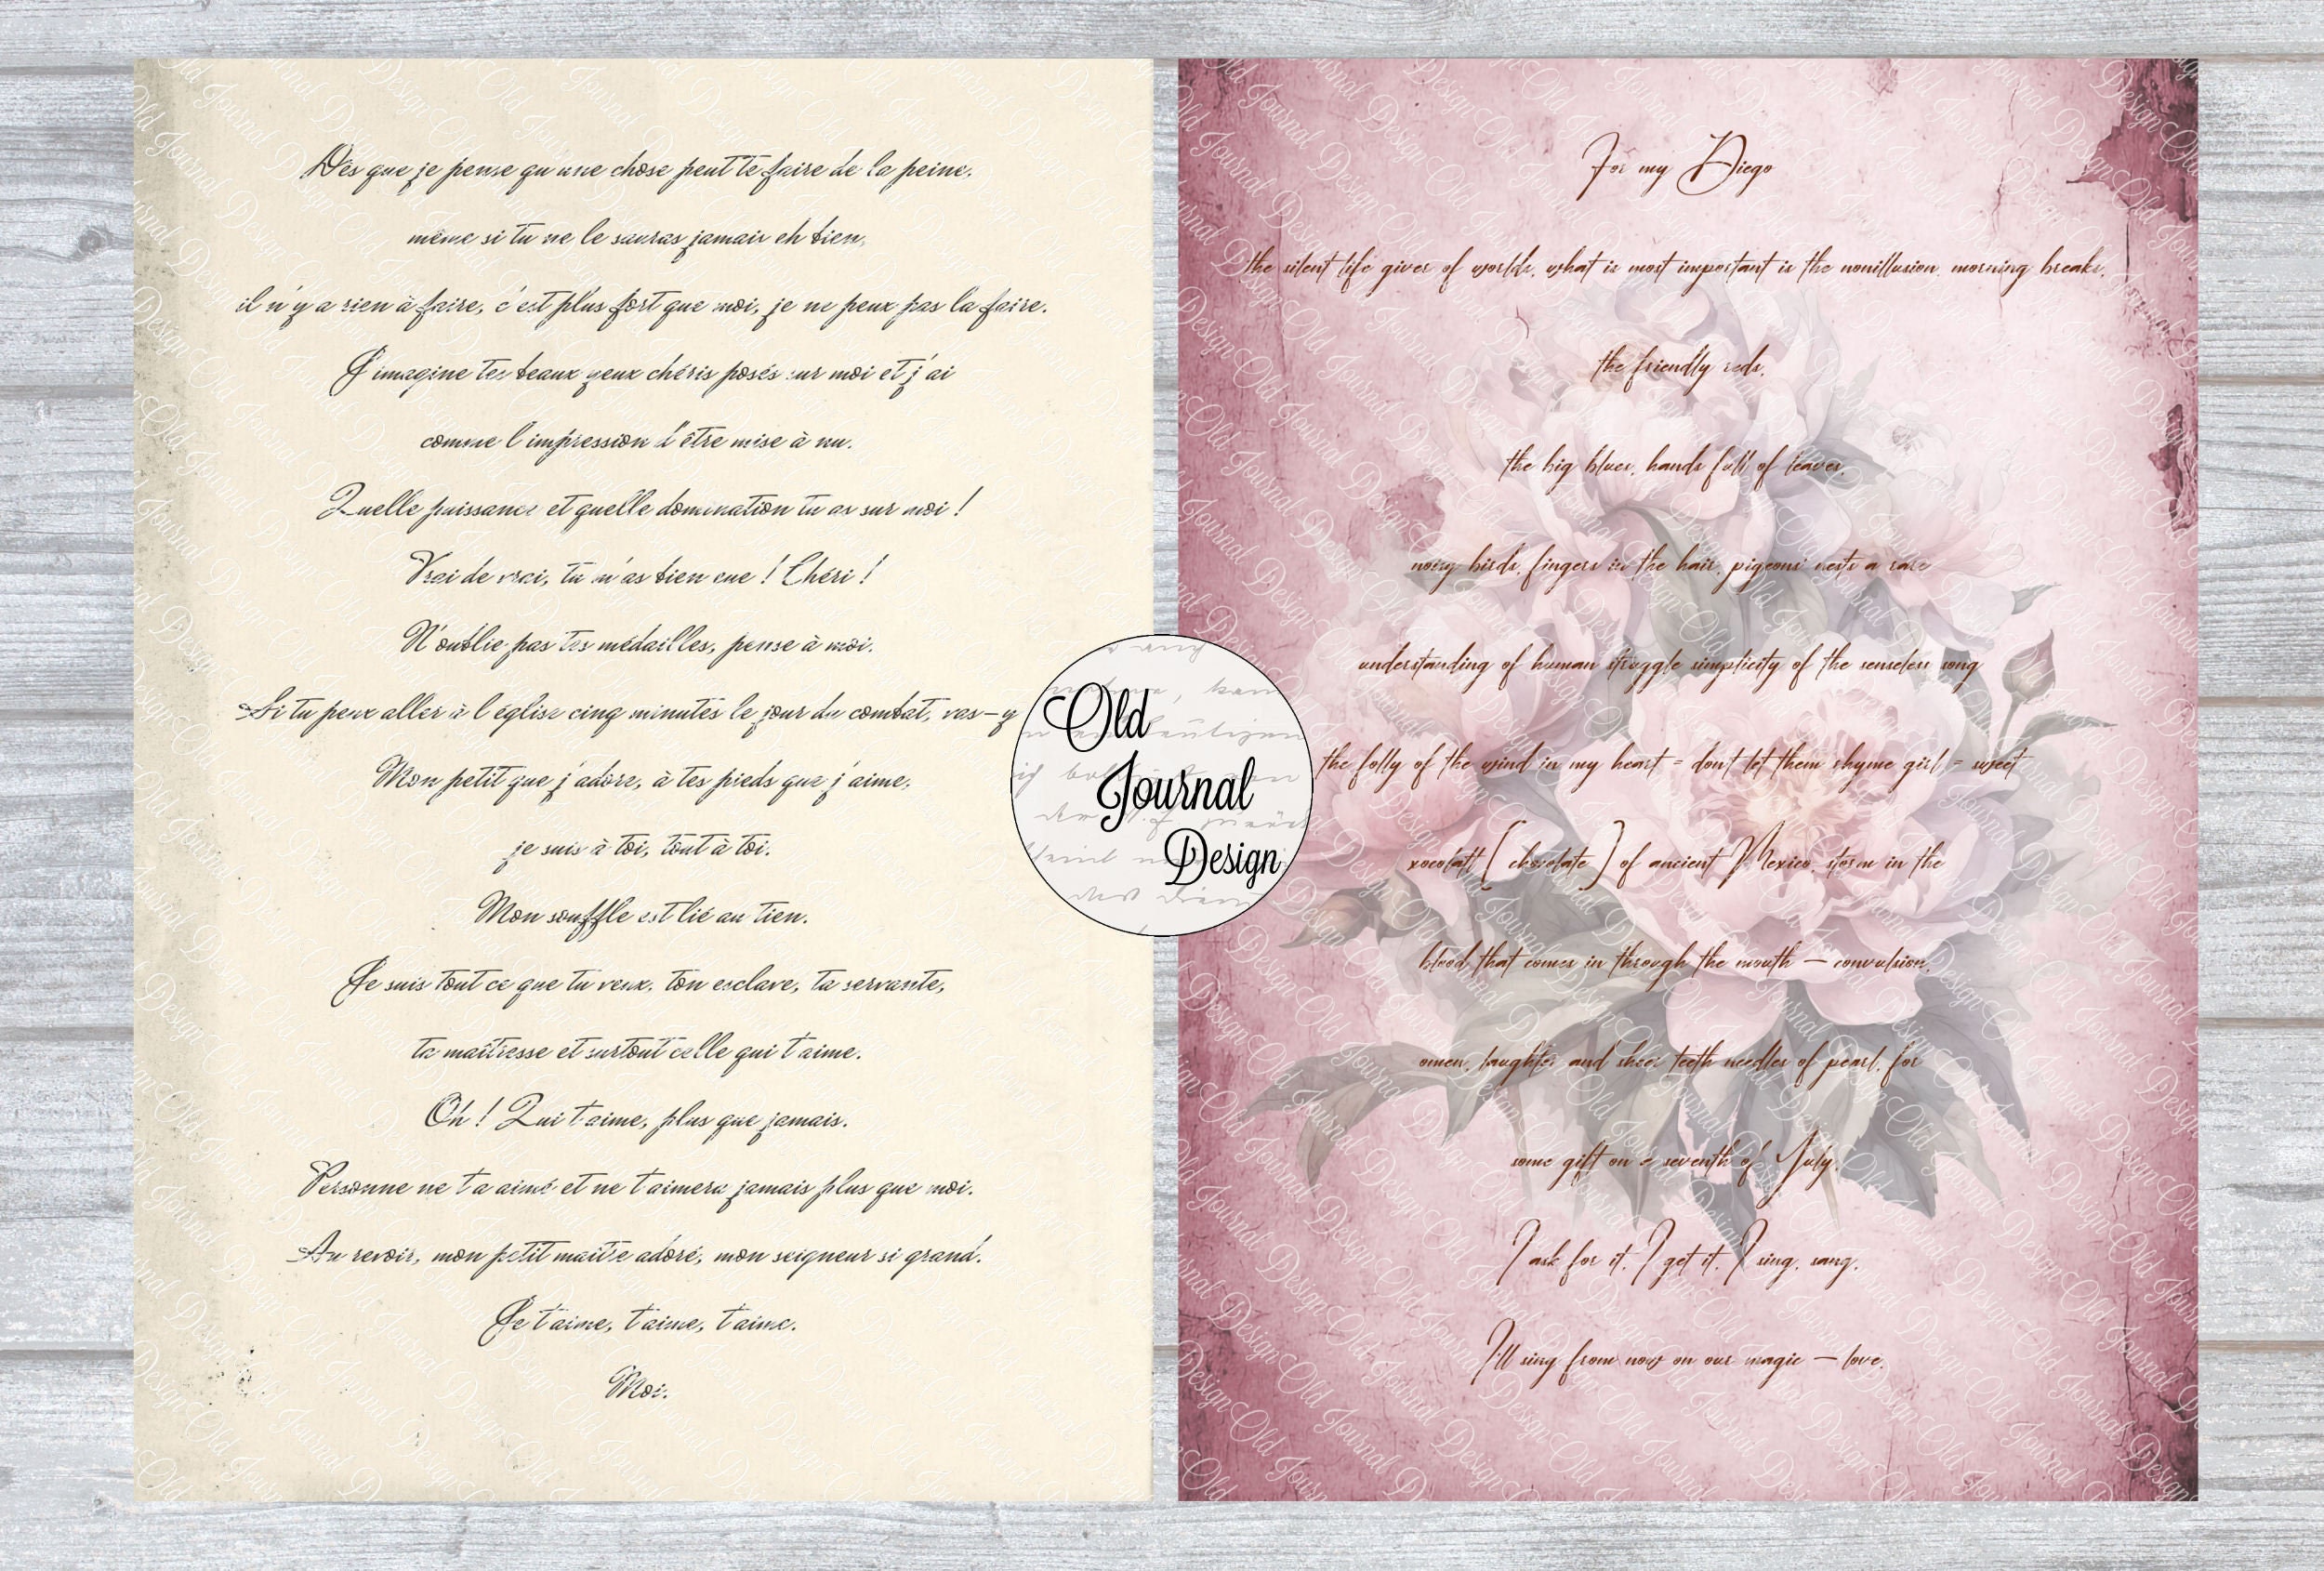 Dès que je pense qu'une chose peut te faire de la peine,
même si tu ne le sauras jamais eh bien,
il n'y a rien à faire, c'est plus fort que moi, je ne peux pas la faire.
J'imagine tes beaux yeux chéris posés sur moi et j'ai
comme l'impression d'être mise à nu.
Quelle puissance et quelle domination tu as sur moi !
Vrai de vrai, tu m'as bien eue ! Chéri !
N'oublie pas tes médailles, pense à moi.
Si tu peux aller à l'église cinq minutes le jour du combat, vas-y
Mon petit que j'adore, à tes pieds que j'aime,
je suis à toi, tout à toi.
Mon souffle est lié au tien.
Je suis tout ce que tu veux, ton esclave, ta servante,
ta maîtresse et surtout celle qui t'aime.
Oh ! Qui t'aime, plus que jamais.
Personne ne t'a aimé et ne t'aimera jamais plus que moi.
Au revoir, mon petit maître adoré, mon seigneur si grand.
Je t'aime, t'aime, t'aime.
Moi.
Old
Journal
Design
For my Diego
the silent life giver of worlds, what is most important is the nonillusion. morning breaks,
the friendly reds,
the big blues, hands full of leaves,
noisy birds, fingers in the hair, pigeons' nests a rare
understanding of human struggle simplicity of the senseless song
the folly of the wind in my heart = don't let them rhyme girl = sweet
xocolatl [ chocolate ] of ancient Mexico, storm in the
blood that comes in through the mouth — convulsion,
omen, laughter and sheer teeth needles of pearl, for
some gift on a seventh of July,
I ask for it, I get it, I sing, sang,
I'll sing from now on our magic — love.